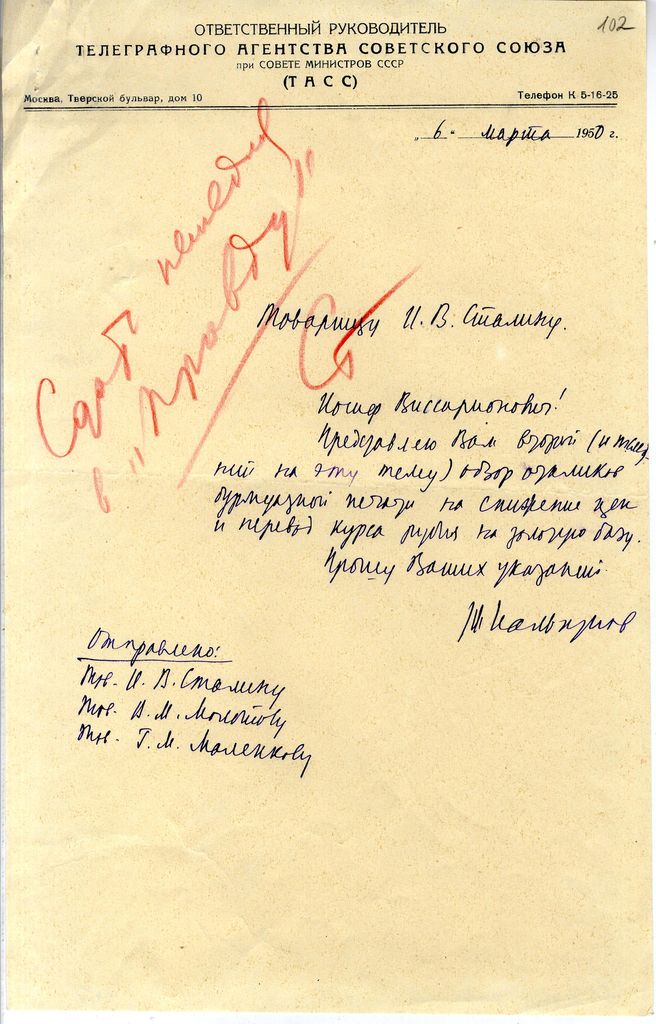 102
ОТВЕТСТВЕННЫЙ РУКОВОДИТЕЛЬ
ТЕЛЕГРАФНОГО АГЕНТСТВА СОВЕТСКОГО СОЮЗА
при СОВЕТЕ МИНИСТРОВ СССР
(ТАСС)
Москва, Тверской бульвар, дом 10
Телефон К 5-16-25
„ 6 “ марта 1950 г.
Сдать немедля
в „Правду“
Ст
Товарищу И. В. Сталину.
Иосиф Виссарионович!
Представляю Вам второй (и послед-
ний на эту тему) обзор откликов
буржуазной печати на снижение цен
и перевод курса рубля на золотую базу.
Прошу Ваших указаний.
Отправлено:
Тов. И. В. Сталину
Тов. В. М. Молотову
Тов. Г. М. Маленкову